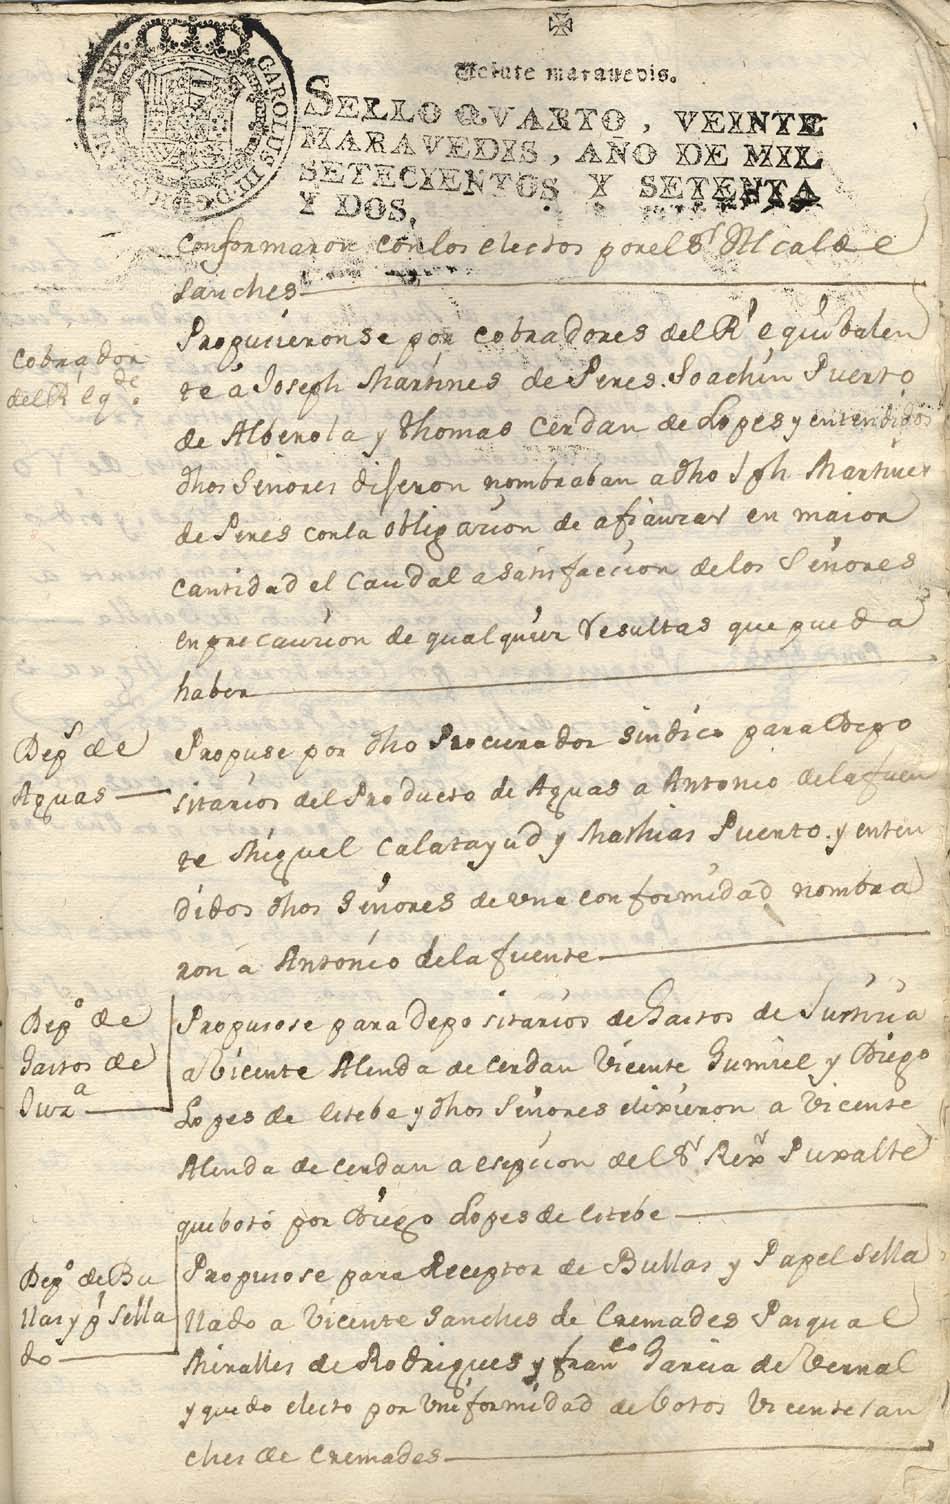 Veinte maravedis.
SELLO QVARTO, VEINTE
MARAVEDIS, AÑO DE MIL
SETECIENTOS Y SETENTA
Y DOS.
CAROLUS III D G HISP REX
conformaron con los electos por el Sr Alcalde
Sanches
Cobrador
del Rl eqte
Propucieronse por cobradores del Rl equibalen
te á Joseph Martines de Peres. Joachin Puerto
de Alberola y Thomas Cerdan de Lopes y entendidos
dhos Señores diseron nombraban a dho Jph Martines
de Peres con la obligazion de afianzar en maior
cantidad el caudal a satisfaccion de los Señores
en precaucion de qualquier resultas que pueda
haber
Deps de
Aguas
Propuse por dho Procurador sindico para Depo
sitarios del Producto de Aguas a Antonio de la fuen
te Miguel Calatayud y Mathias Puerto. y enten
didos dhos Señores de una conformidad nombra
ron á Antonio de la fuente
Depo de
Gastos de
Jura
Propusose para depositarios de Gastos de Justicia
a Vicente Alenda de Cerdan Vicente Gumiel y Diego
Lopes de Estebe y dhos Señores elixieron a Vicente
Alenda de Cerdan a esepcion del Sr Rexr Puxalte
que botó por Diego Lopes de Estebe
Depo de Bu
llas y pl sella
do
Propusose para Receptor de Bullas y Papel Sella
llado a Vicente Sanches de Cremades Pasqual
Miralles de Rodrigues y Franco Garcia de Bernal
y quedo electo por uniformidad de botos Vicente San
ches de Cremades